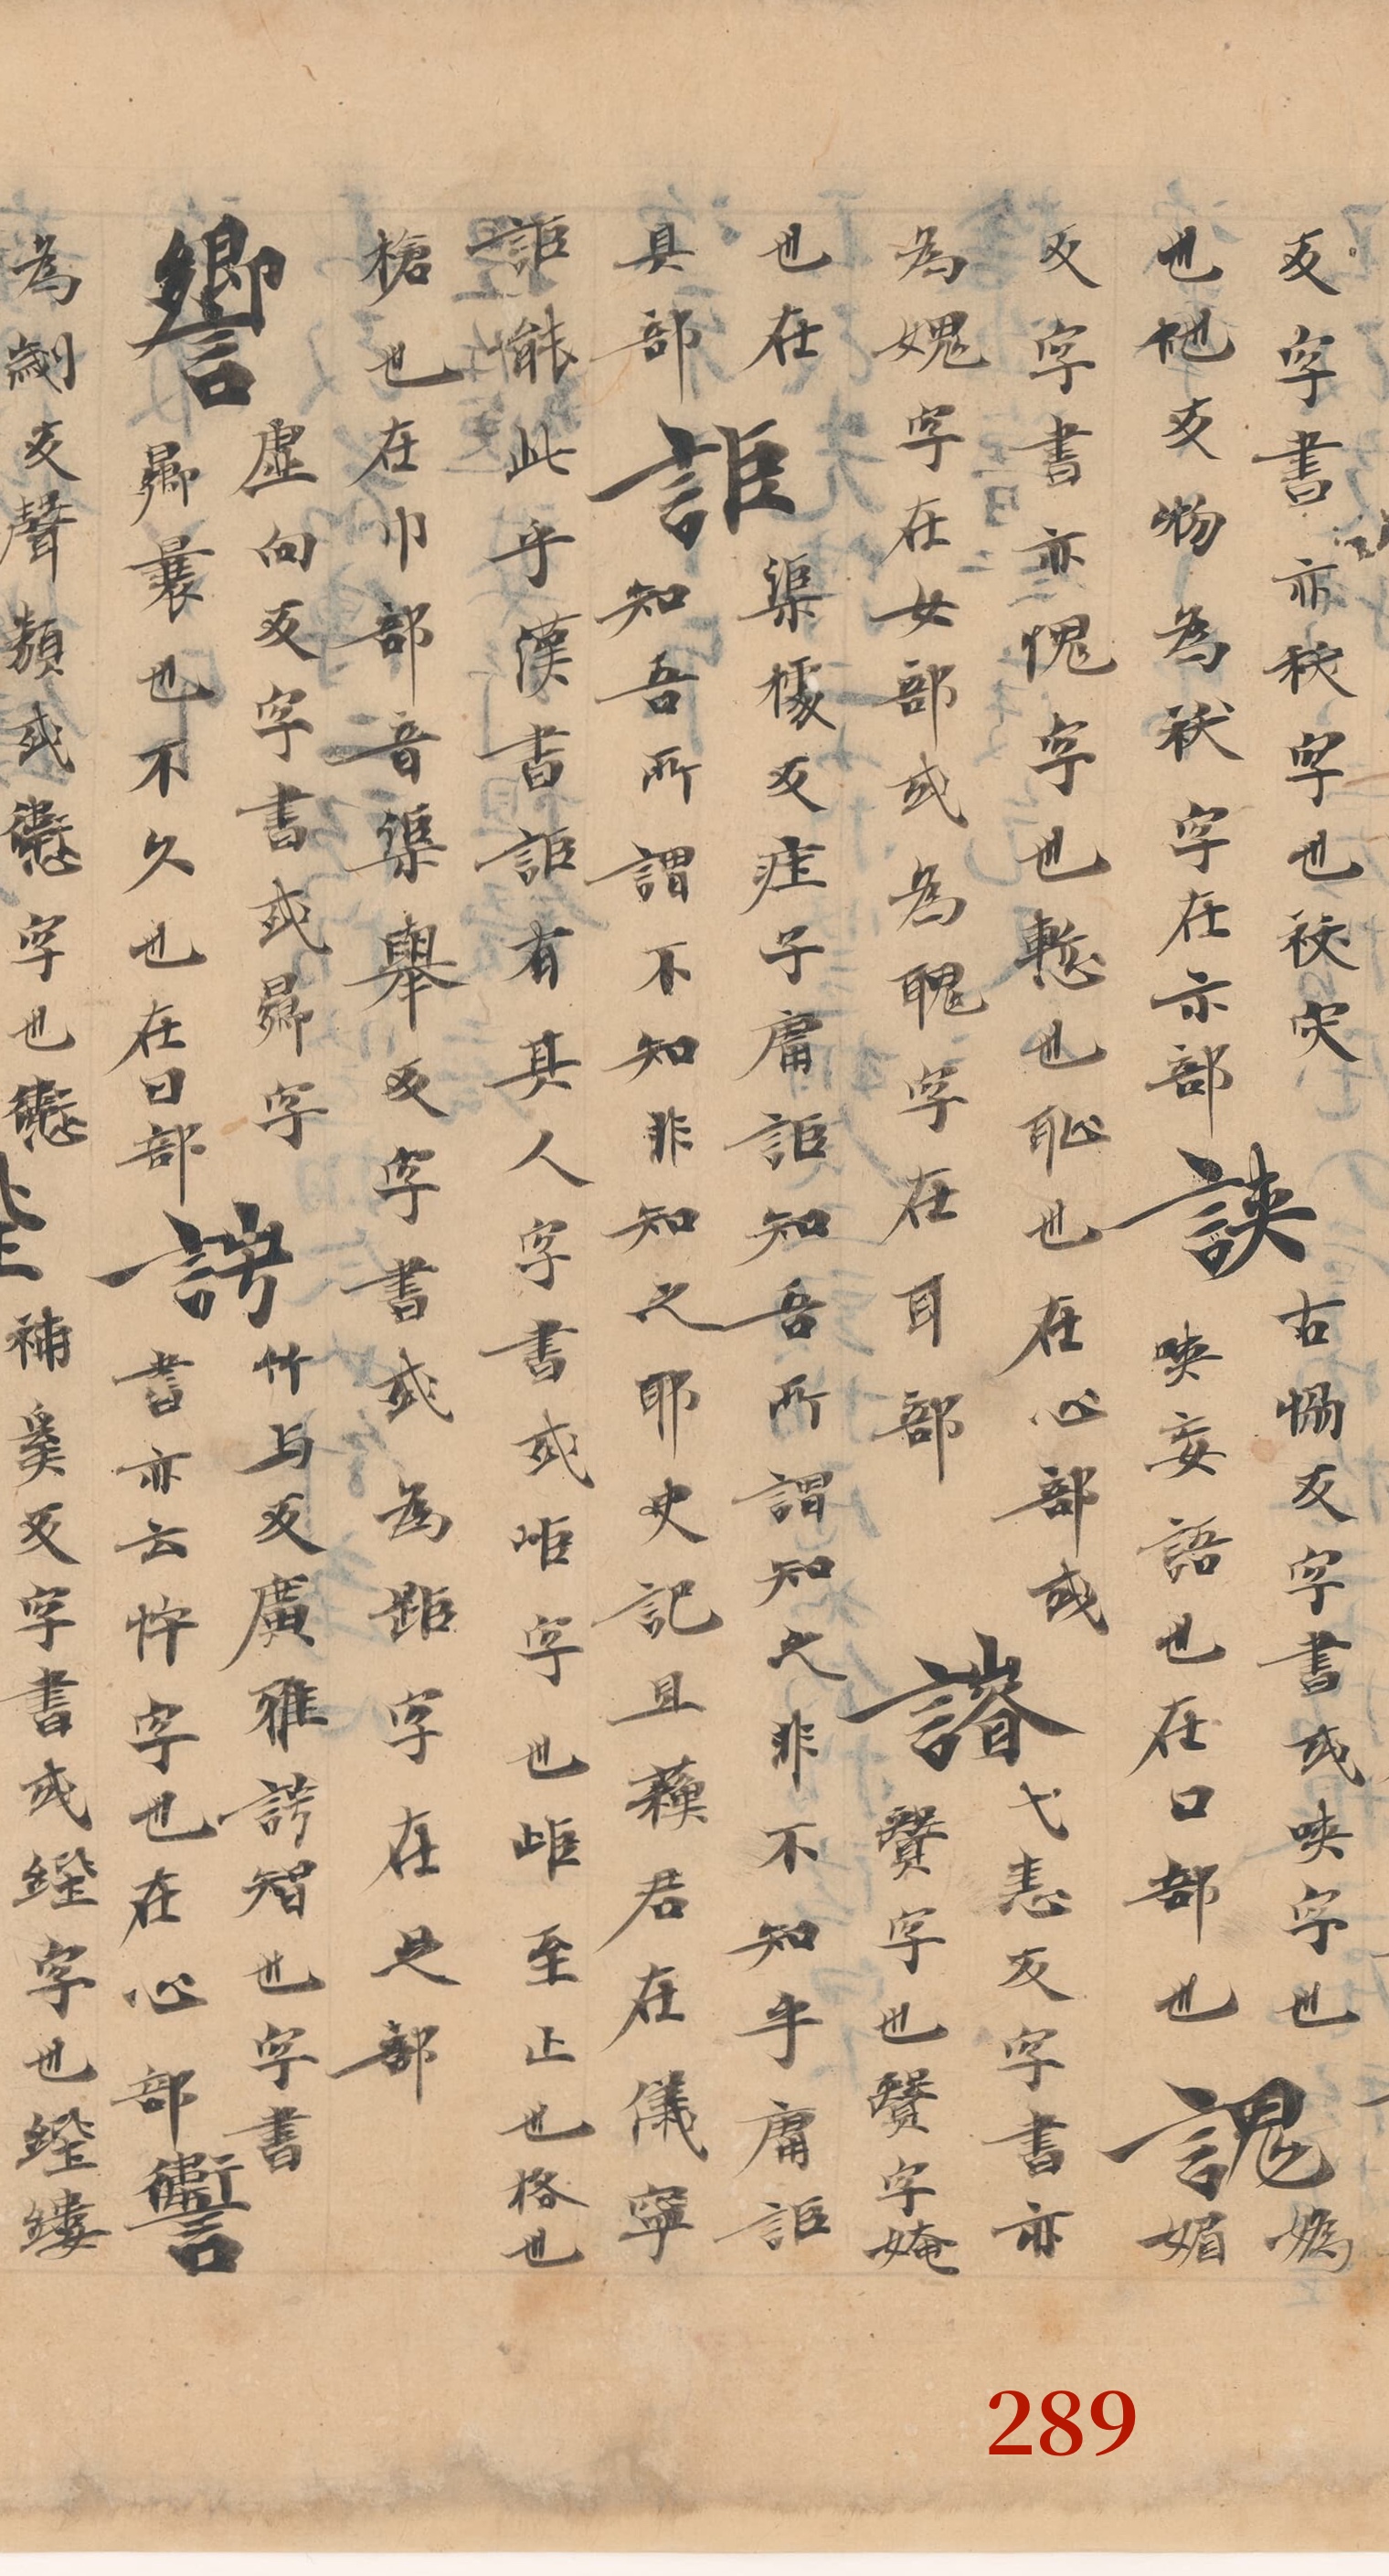 反字書亦秡字也祅灾
也他反物為袄字在示部 䛟 古惝反字書或唊字也
唊妄語也在口部也 謉 媿媚
反字書亦愧字也慙也恥也在心部或
為媿字在女部或為聭字在耳部 䜭 弋恚反字書亦
賢字也賢字婉
也在具部 詎 渠據反莊子庸詎知吾所謂知之非不知乎庸詎
知吾所謂不知非知之耶史記且蘓君在儀寧
詎能此乎漢書詎有其人字書或岠字也岠至止也格也
槍也在巾部音渠舉反字書或為距字在足部
 虛向反字書或曏字
曏曩也不久也在日部 䛩 竹与反廣雅䛩智也字書
書亦云㤖字也在心部 讏
為劌反聲類或㦣字也㦣
補奚反字書或字也鏤
289